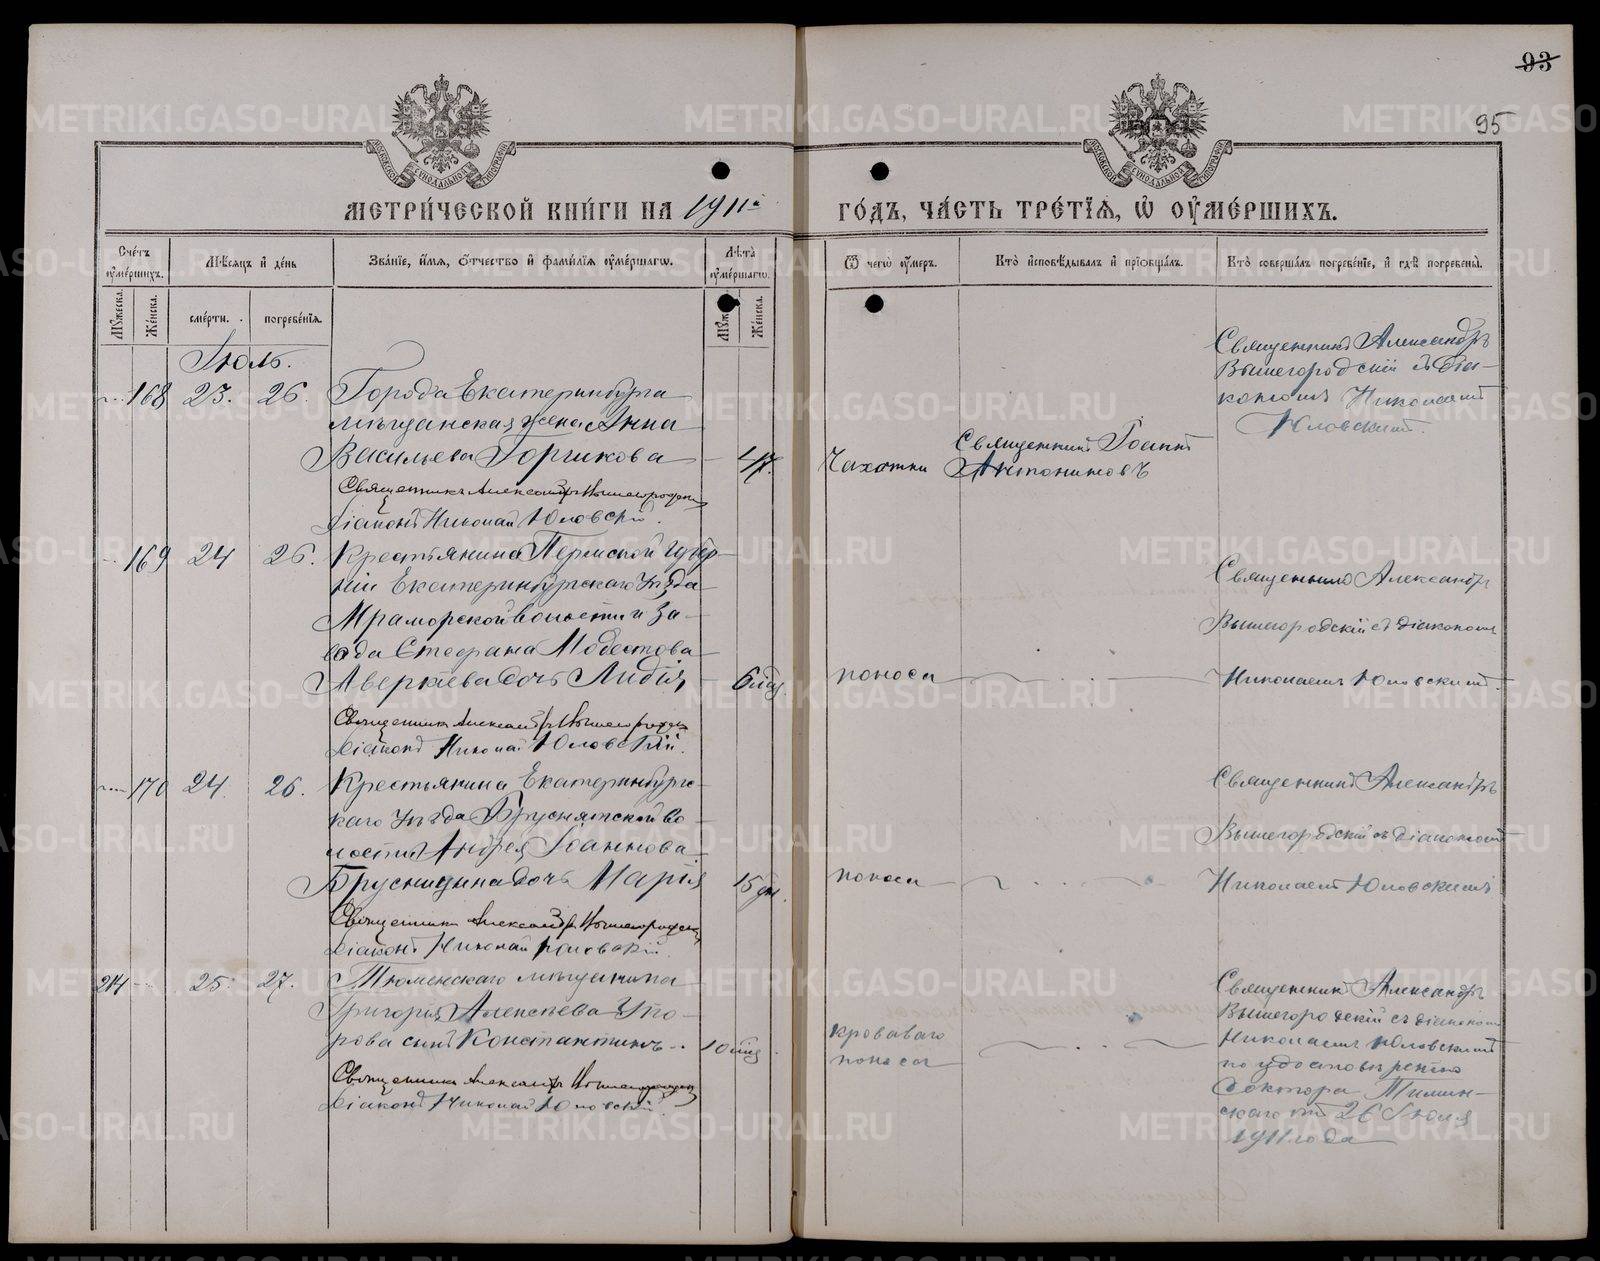 93
95
МЕТРИЧЕСКОЙ КНИГИ НА 1911й ГОДЪ, ЧАСТЬ ТРЕТІЯ, Ѿ ОУМЕРШИХЪ.
Счетъ оумершихъ.
Мѣсяцъ и день
Званіе, имя, отчество и фамилія оумершагѡ.
Лѣта оумершагѡ.
Ѿ чегѡ оумеръ.
Кто исповѣдывалъ и пріобщалъ.
Кто совершалъ погребеніе, и гдѣ погребены.
Мужеска.
Женска.
смерти.
погребенія.
Женска.
Іюль.
168 23. 26. Города Екатеринбурга
мѣщанская жена Анна
Васильева Горшкова 47. Чахотки
Священникъ Іоаннъ
Антониновъ
Священникъ Александръ
Вышегородскій съ діа-
кономъ Николаемъ
Юловскимъ.
Священникъ Александръ Вышегородскій
Діаконъ Николай Юловскій.
169 24 26. Крестьянина Пермской губер-
ніи Екатеринбургскаго уѣзда
Мраморской волости и за-
вода Стефана Модестова
Аверкіева дочь Лидія 6 мѣс. поноса
Священникъ Александръ
Вышегородскій съ діакономъ
Николаемъ Юловскимъ.
Священникъ Александръ Вышегородскій
Діаконъ Николай Юловскій.
170 24. 26. Крестьянина Екатеринбургс-
каго уѣзда Бруснятской во-
лости Андрея Іоаннова
Брусницына дочь Марія 15 дн. поноса
Священникъ Александръ
Вышегородскій съ діакономъ
Николаемъ Юловскимъ
Священникъ Александръ Вышегородскій
Діаконъ Николай Юловскій.
214 25. 27. Тюменскаго мѣщанина
Григорія Алексѣева Упо-
рова сынъ Константинъ 10 мѣс
кроваваго
поноса
Священникъ Александръ
Вышегородскій съ діакономъ
Николаемъ Юловскимъ
по удостовѣренію
доктора
скаго отъ 26 Іюля
1911 года
Священникъ Александръ Вышегородскій
Діаконъ Николай Юловскій.
METRIKI.GASO-URAL.RU